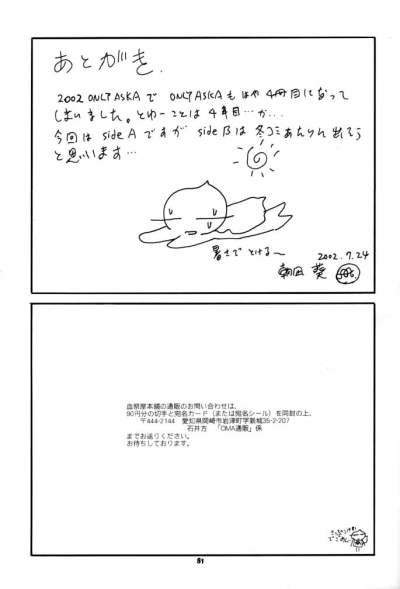 あとがき.
2002 ONLY ASKAで ONLY ASKAもはや4冊目になって
しまいました。とゆーことは4年目…か…
今回は side Aですが side Bは冬コミあたりに出そう
と思います…
暑さで とける〜
2002.7.24
朝凪 葵
血祭屋本舗の通販のお問い合わせは、
90円分の切手と宛名カード（または宛名シール）を同封の上、
〒444-2144　愛知県岡崎市岩津町字新城35-2-207
石井方　「OMA通販」係
までお送りください。
お待ちしております。
51